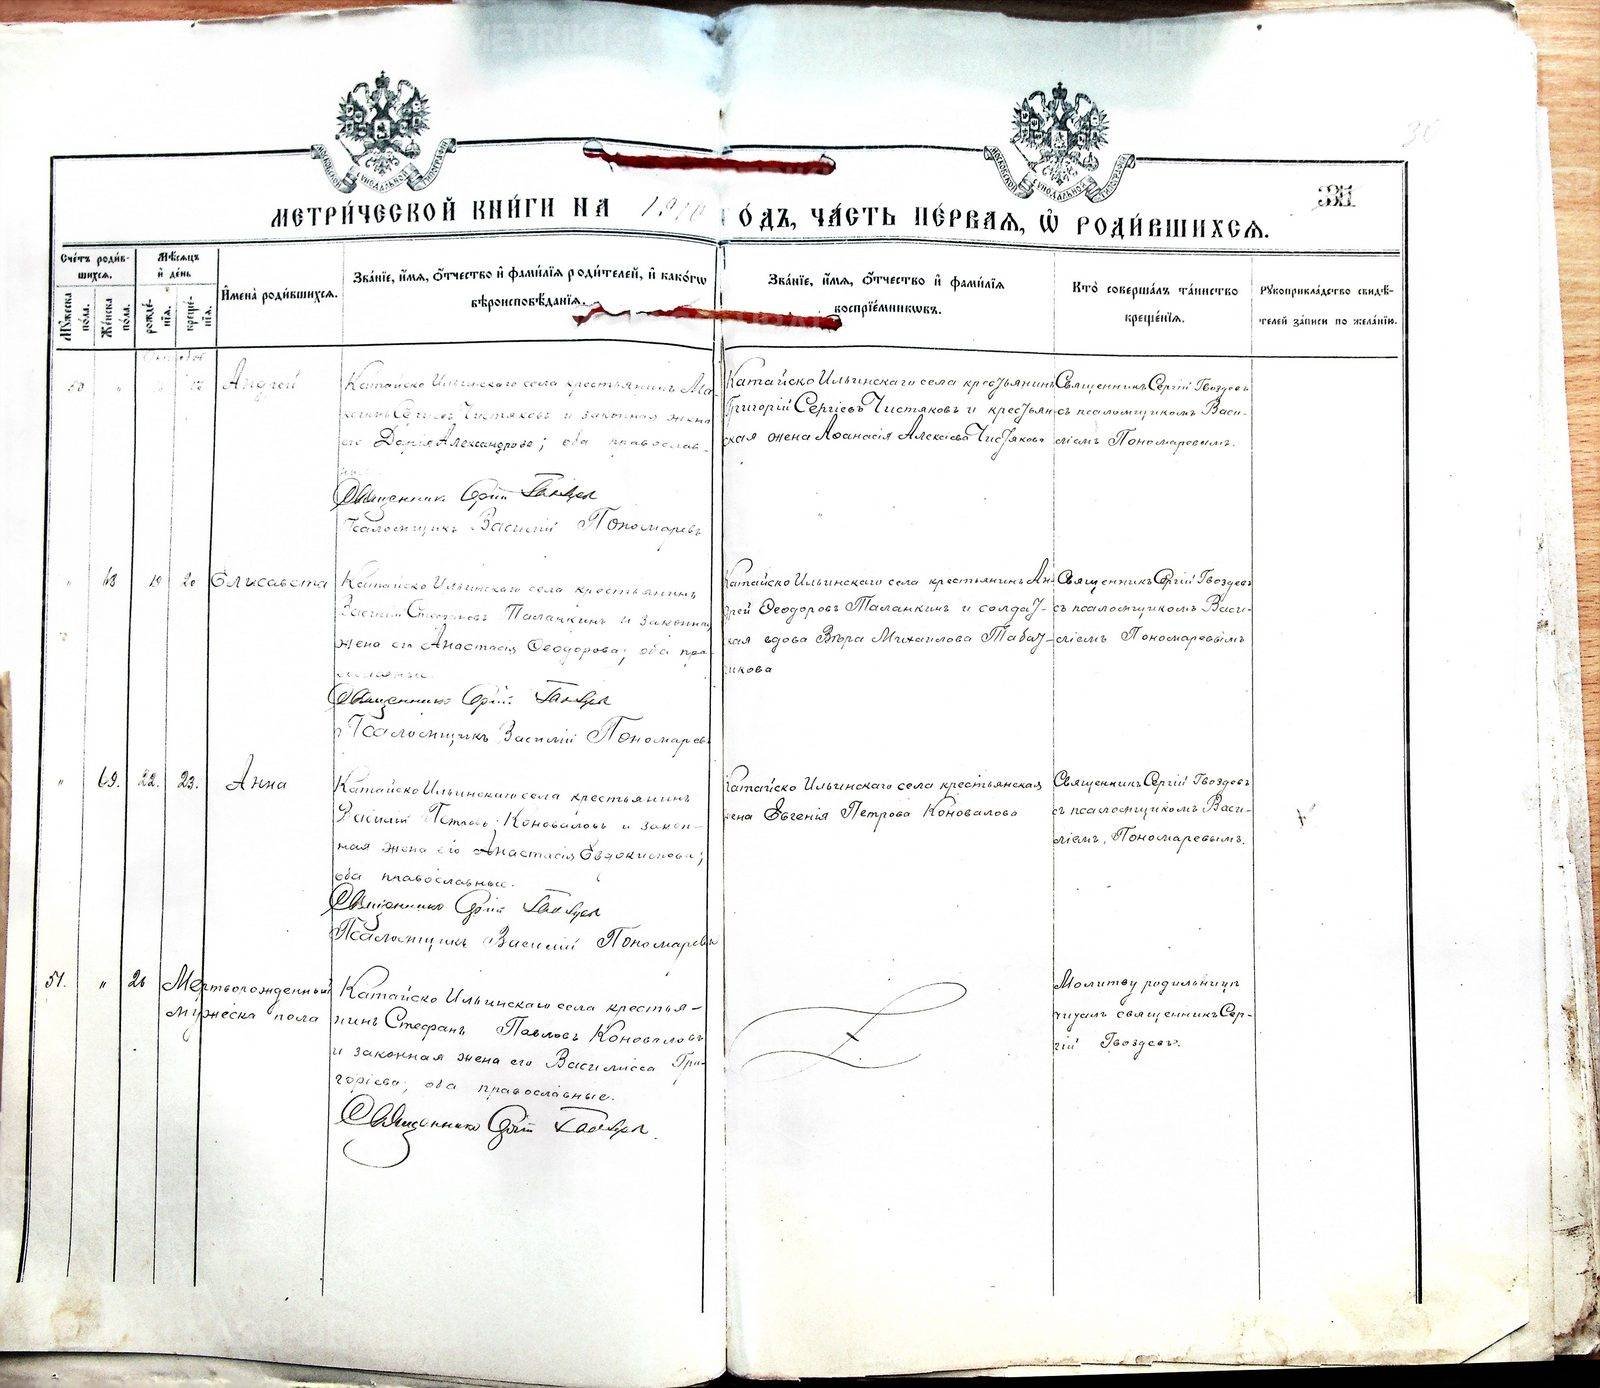 МЕТРИ́ЧЕСКОЙ КНИ́ГИ НА 1910 ГО́ДЪ, ЧА́СТЬ ПЕ́РВАЯ, Ѽ РОДИ́ВШИХСѦ.
Сче́тъ роди́в-
шихся.
Мѣ́сяцъ
и҆ де́нь
Мꙋ́жеска
по́ла.
Же́нска
по́ла.
рожде́-
нїѧ.
креще́-
нїѧ.
И҆мена̀ роди́вшихсѧ.
Зва́нїе, и҆́мѧ, ѻ҆́тчество и҆ фами́лїѧ роди́телей, и҆ како́гѡ
вѣроисповѣ́данїѧ.
Зва́нїе, и҆́мѧ, ѻ҆́тчество и҆ фами́лїѧ
воспрїе́мникѡвъ.
Кто̀ соверша́лъ та́инство
креще́нїѧ.
Рꙋкоприкла́дство свидѣ́-
телей за́писи по жела́нїю.
Андрей
Катайско Ильинскаго села крестьянинъ Ма-
Сергіевъ Чистяковъ и законная жена
его Дарія Александрова; оба православ-
Священникъ Сергій Гвоздевъ
Псаломщикъ Василій Пономаревъ
Катайско Ильинскаго села крестьянинъ
Григорій Сергіевъ Чистяковъ и крестьян-
ская жена Аѳанасія Алексіева Чистякова
Священникъ Сергій Гвоздевъ
съ псаломщикомъ Васи-
ліемъ Пономаревымъ.
" 68 19 20 Елисавета
Катайско Ильинскаго села крестьянинъ
Василій Стефановъ Таланкинъ и законная
жена его Анастасія Ѳеодорова; оба пра-
вославные.
Священникъ Сергій Гвоздевъ
Псаломщикъ Василій Пономаревъ
Катайско Ильинскаго села крестьянинъ Ан-
дрей Ѳеодоровъ Таланкинъ и солдат-
ская вдова Вѣра Михаилова Табат-
чикова
Священникъ Сергій Гвоздевъ
съ псаломщикомъ Васи-
ліемъ Пономаревымъ
" 69. 22. 23. Анна
Катайско Ильинскаго села крестьянинъ
Василій Петровъ Коноваловъ и закон-
ная жена его Анастасія Евдокимова;
оба православные.
Священникъ Сергій Гвоздевъ
Псаломщикъ Василій Пономаревъ
Катайско Ильинскаго села крестьянская
жена Евгенія Петрова Коновалова
Священникъ Сергій Гвоздевъ
съ псаломщикомъ Васи-
ліемъ Пономаревымъ.
51. " 26 Мертворожденный
мужеска пола
Катайско Ильинскаго села крестья-
нинъ Стефанъ Павловъ Коноваловъ
и законная жена его Василисса Гри-
горіева; оба православные.
Священникъ Сергій Гвоздевъ.
Молитву родильницѣ
читалъ священникъ Сер-
гій Гвоздевъ.